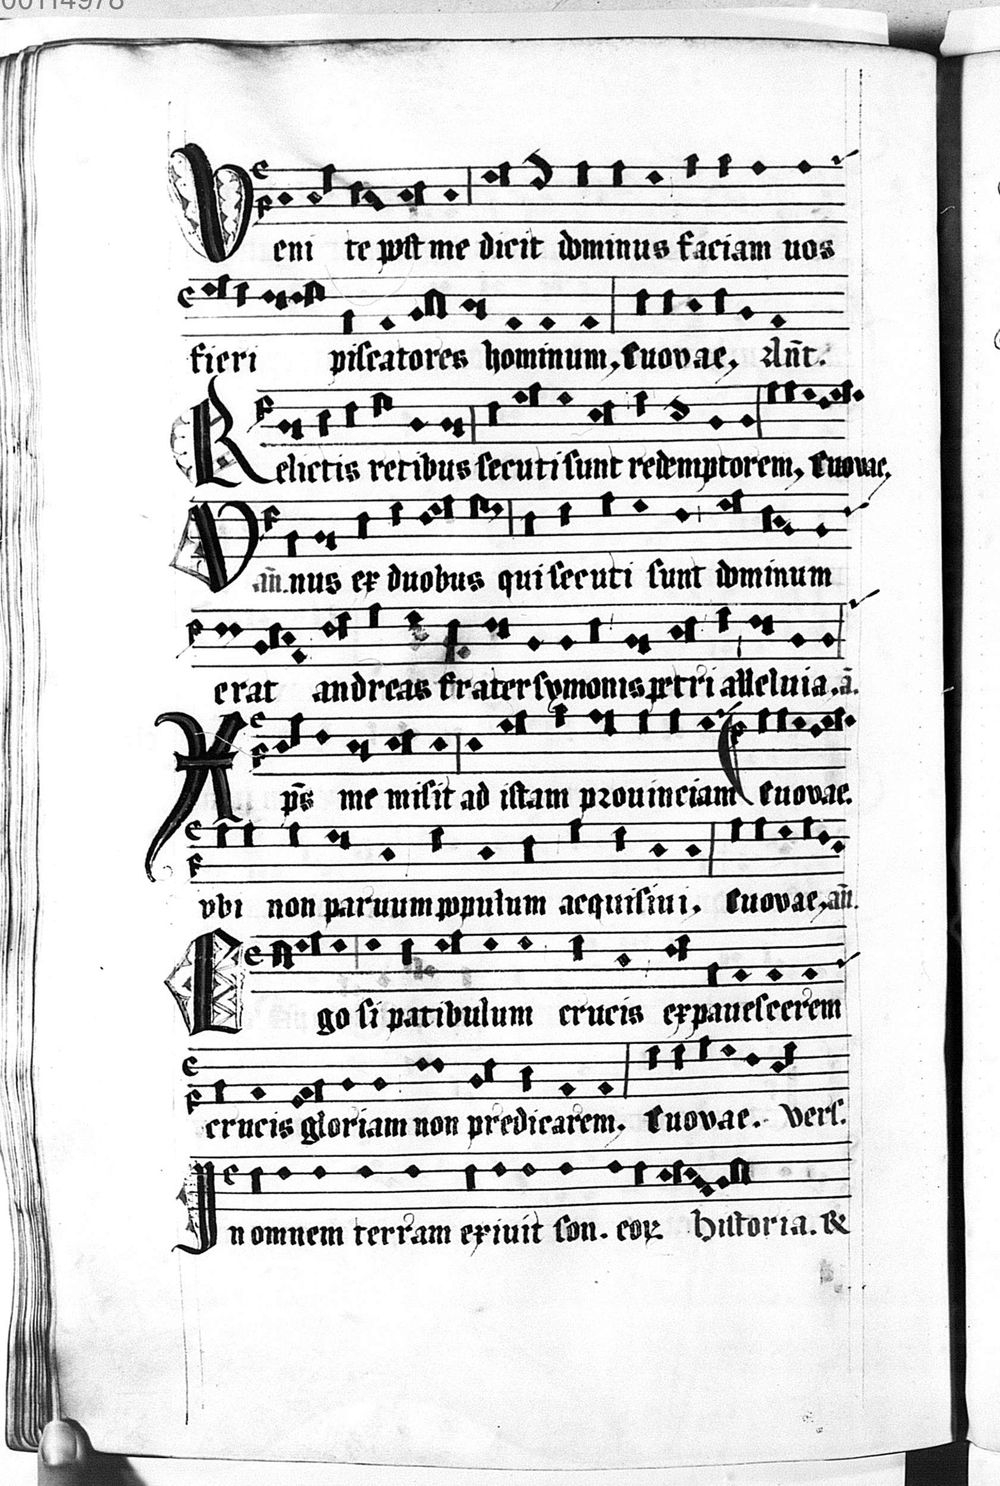 00114978
Veni te post me dicit dominus faciam uos
fieri piscatores hominum, Euovae, Ant.
Relictis retibus secuti sunt redemptorem, Euovae,
Vnus ex duobus qui secuti sunt dominum
erat andreas frater symonis petri alleluia. ā.
Xp̄s me misit ad istam prouinciam Euovae.
vbi non paruum populum acquisiui, Euovae, an̄.
Ego si patibulum crucis expauescerem
crucis gloriam non predicarem. Euovae. Vers.
In omnem terram exiuit son. eoꝝ Historia. R